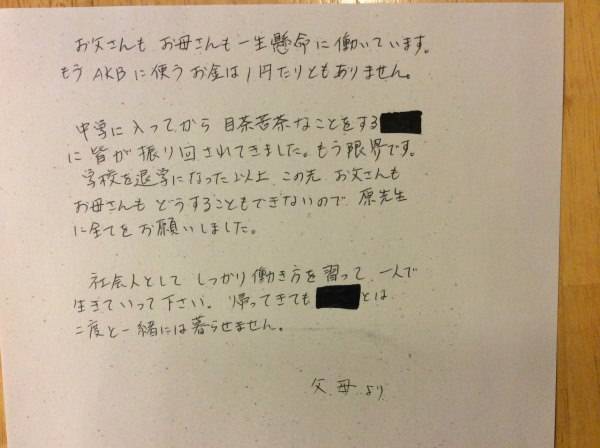 お父さんも お母さんも一生懸命に働いています。
もう AKBに使うお金は1円たりともありません。
中学に入ってから 目茶苦茶なことをする
に皆が振り回されてきました。もう限界です。
学校を退学になった以上 この先 お父さんも
お母さんも どうすることもできないので 原先生
に全てをお願いしました。
社会人として しっかり働き方を習って 一人で
生きていって下さい。帰ってきても とは
二度と一緒には暮らせません。
父 母 より